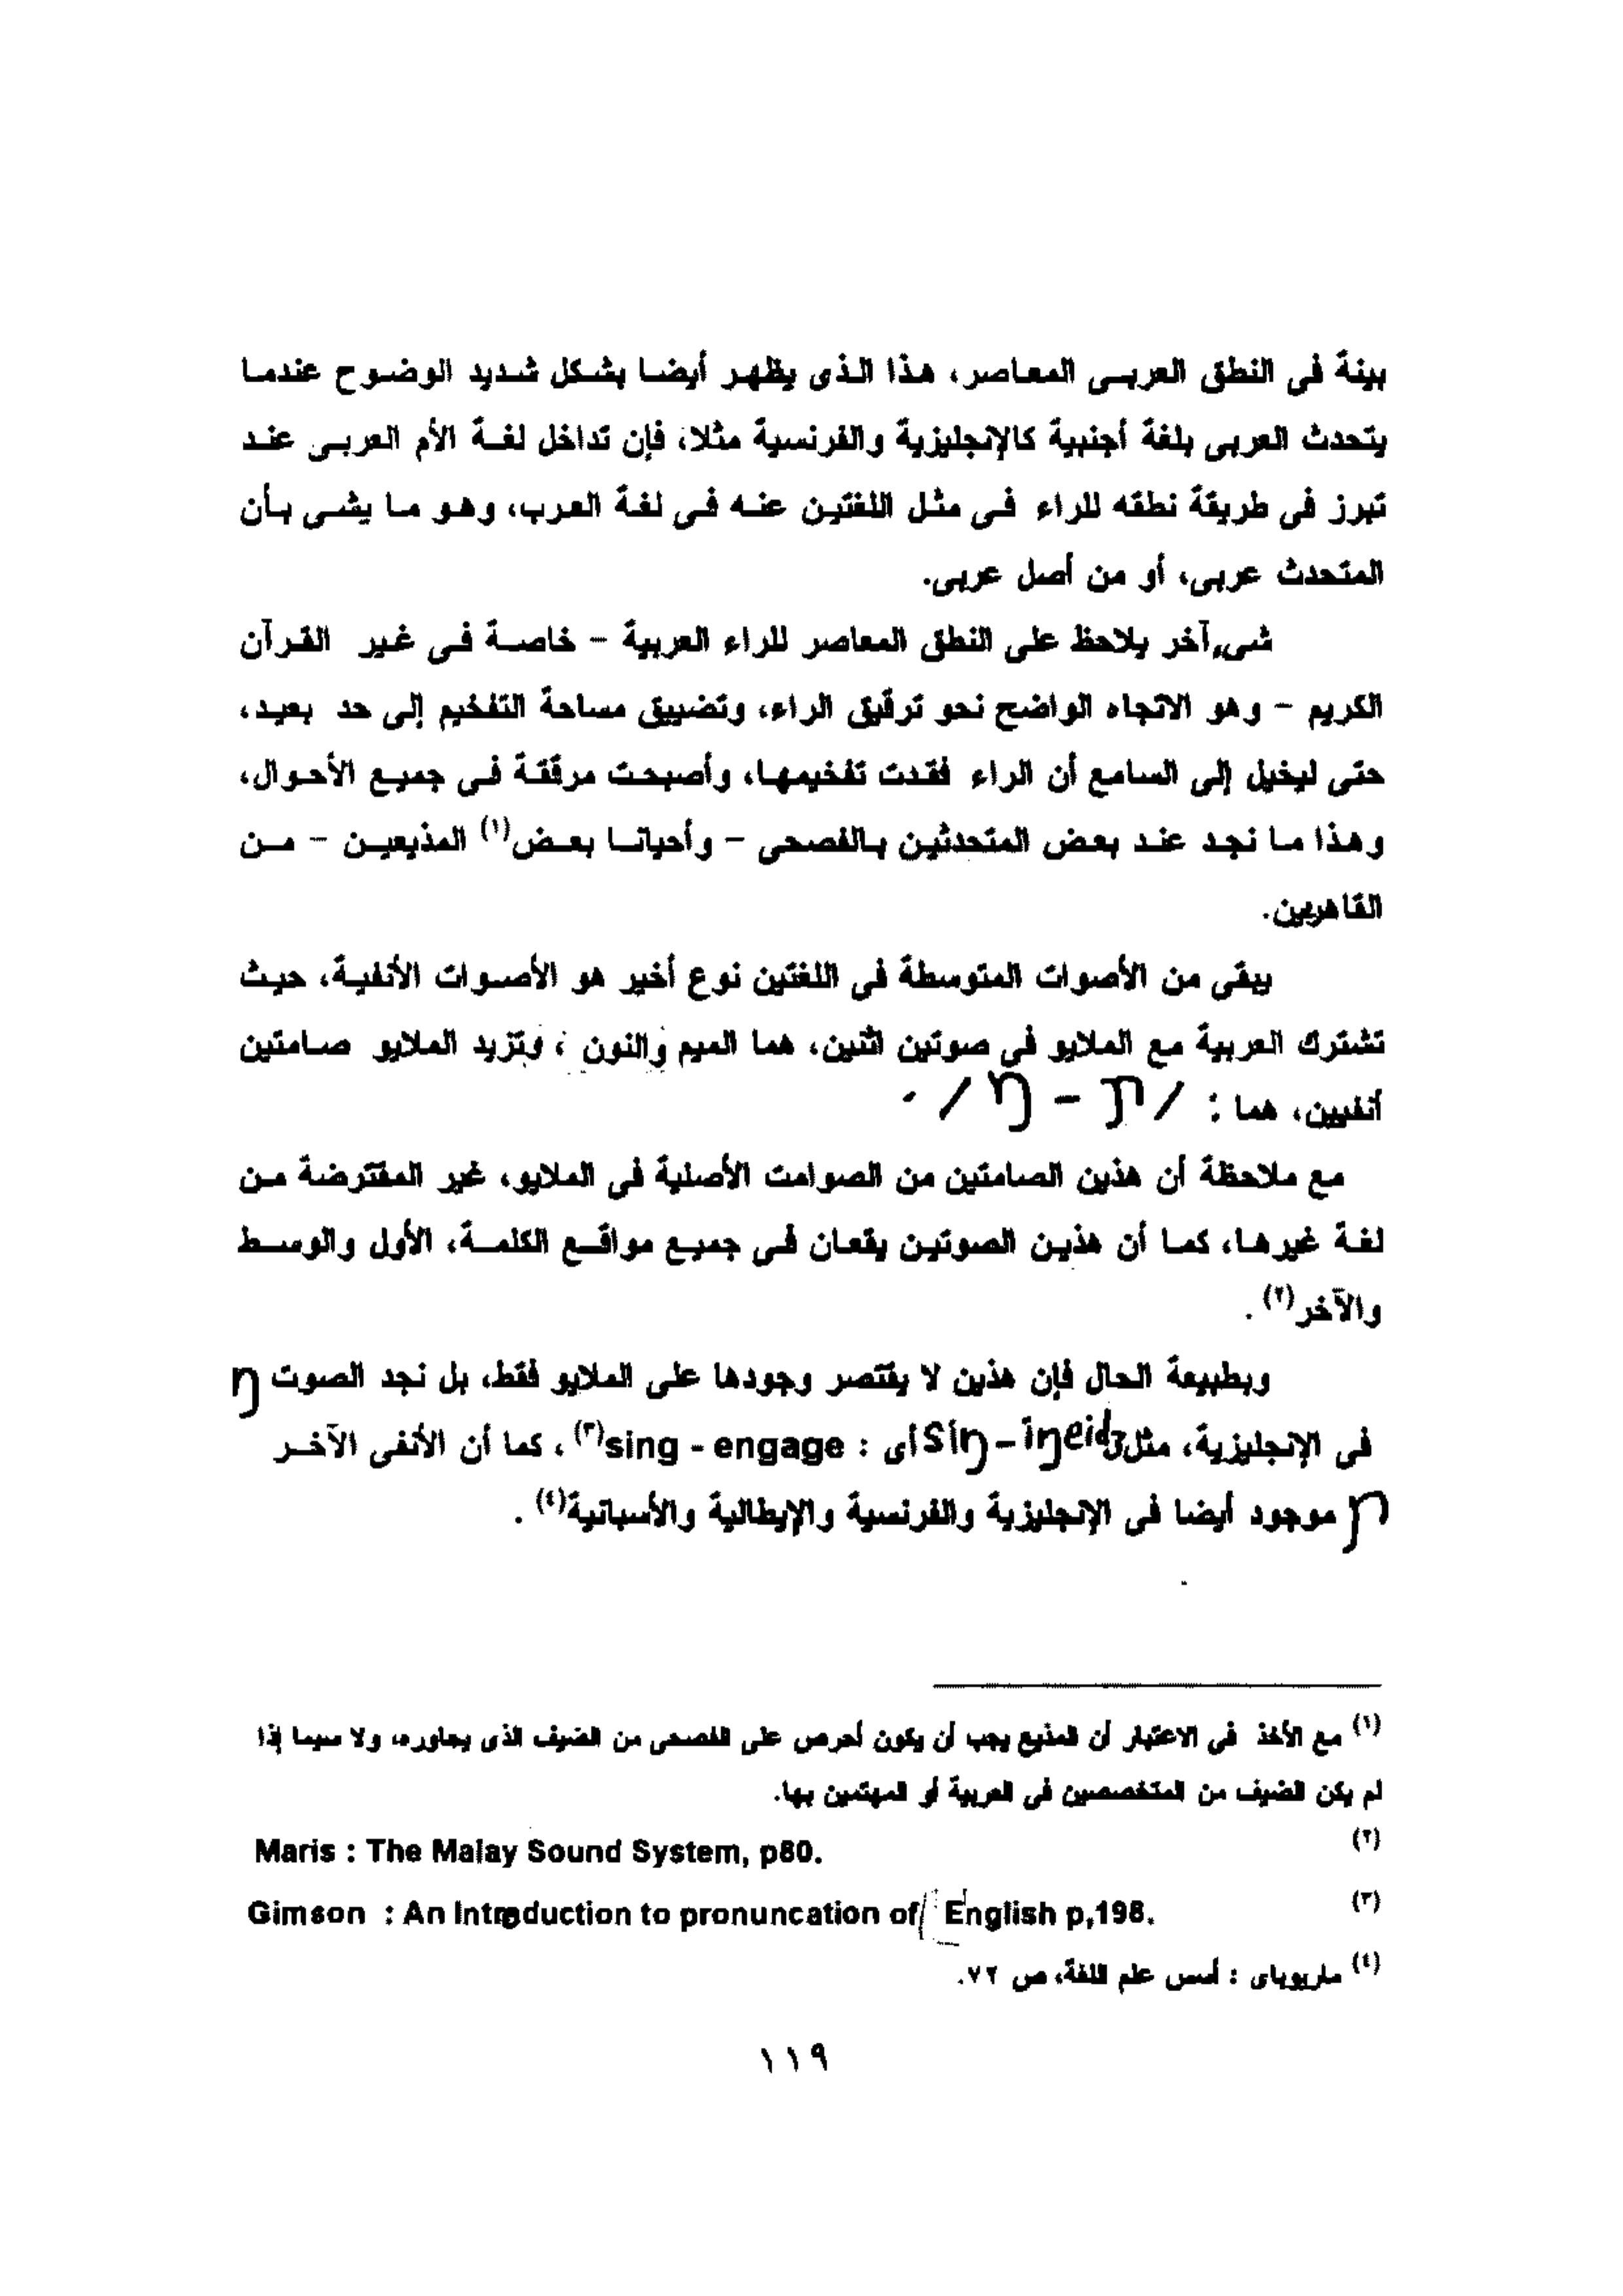 بينة فى النطق العربى المعاصر، هذا الذى يظهر أيضا بشكل شديد الوضوح عندما
يتحدث العربى بلغة أجنبية كالإنجليزية والفرنسية مثلا، فإن تداخل لغة الأم العربى عند
تبرز فى طريقة نطقه للراء فى مثل اللغتين عنه فى لغة العرب، وهو ما يشى بأن
المتحدث عربى، أو من أصل عربى.
شىء آخر يلاحظ على النطق المعاصر للراء العربية – خاصة فى غير القرآن
الكريم – وهو الاتجاه الواضح نحو ترقيق الراء، وتضييق مساحة التفخيم إلى حد بعيد،
حتى ليخيل إلى السامع أن الراء فقدت تفخيمها، وأصبحت مرققة فى جميع الأحوال،
وهذا ما نجد عند بعض المتحدثين بالفصحى – وأحيانا بعض(١) المذيعين – من
القاهريين.
يبقى من الأصوات المتوسطة فى اللغتين نوع أخير هو الأصوات الأنفية، حيث
تشترك العربية مع الملايو فى صوتين اثنين، هما الميم والنون ، وتزيد الملايو صامتين
أنفيين، هما : /ɲ – ŋ/ .
مع ملاحظة أن هذين الصامتين من الصوامت الأصلية فى الملايو، غير المقترضة من
لغة غيرها، كما أن هذين الصوتين يقعان فى جميع مواقع الكلمة، الأول والوسط
والآخر(٢) .
وبطبيعة الحال فإن هذين لا يقتصر وجودها على الملايو فقط، بل نجد الصوت ŋ
فى الإنجليزية، مثل siŋ – iŋeidʒ أى : sing - engage(٣) ، كما أن الأنفى الآخر
ɲ موجود أيضا فى الإنجليزية والفرنسية والإيطالية والأسبانية(٤) .
(١) مع الأخذ فى الاعتبار أن المذيع يجب أن يكون أحرص على الفصحى من الضيف الذى يجاوره، ولا سيما إذا
لم يكن الضيف من المتخصصين فى العربية أو المهتمين بها.
(٢) Maris : The Malay Sound System, p80.
(٣) Gimson : An Introduction to pronuncation of English p,198.
(٤) ماريوباى : أسس علم اللغة، ص ٧٢.
١١٩